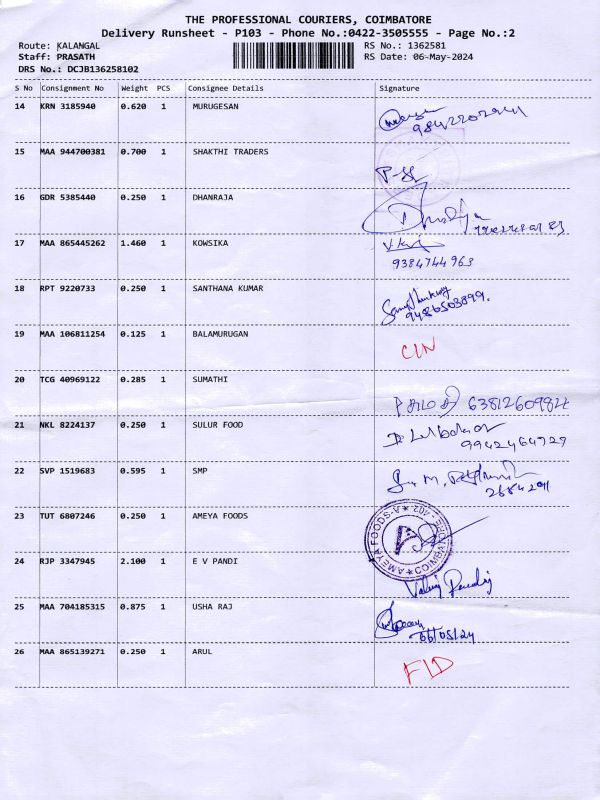 THE PROFESSIONAL COURIERS, COIMBATORE
Delivery Runsheet - P103 - Phone No.:0422-3505555 - Page No.:2
Route: KALANGAL RS No.: 1362581
Staff: PRASATH RS Date: 06-May-2024
DRS No.: DCJB136258102
S No Consignment No Weight PCS Consignee Details Signature
14 KRN 3185940 0.620 1 MURUGESAN
15 MAA 944700381 0.700 1 SHAKTHI TRADERS
16 GDR 5385440 0.250 1 DHANRAJA
17 MAA 865445262 1.460 1 KOWSIKA
9384744963
18 RPT 9220733 0.250 1 SANTHANA KUMAR
9486503899.
19 MAA 106811254 0.125 1 BALAMURUGAN CIN
20 TCG 40969122 0.285 1 SUMATHI
21 NKL 8224137 0.250 1 SULUR FOOD
9942464729
22 SVP 1519683 0.595 1 SMP
23 TUT 6807246 0.250 1 AMEYA FOODS
AMEYA FOODS-A ★ COIMBATORE - 402 ★
24 RJP 3347945 2.100 1 E V PANDI
25 MAA 704185315 0.875 1 USHA RAJ
06/05/24
26 MAA 865139271 0.250 1 ARUL FID